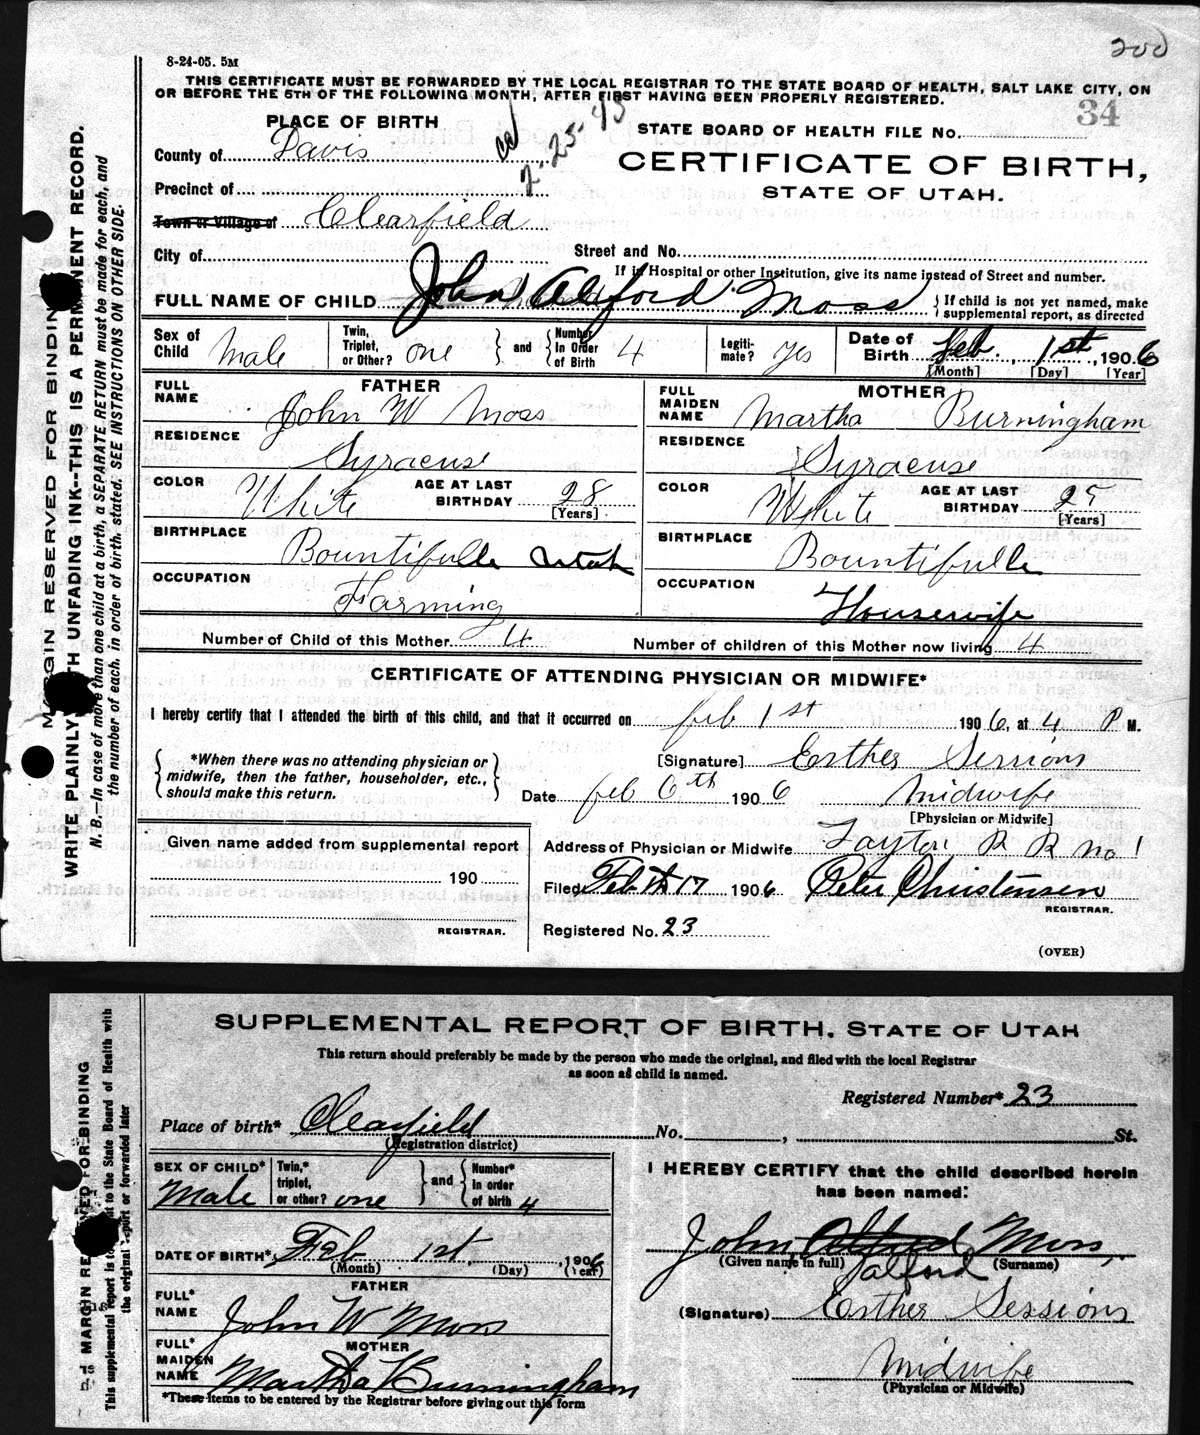 200
8-24-05. 5M
THIS CERTIFICATE MUST BE FORWARDED BY THE LOCAL REGISTRAR TO THE STATE BOARD OF HEALTH, SALT LAKE CITY, ON
OR BEFORE THE 5TH OF THE FOLLOWING MONTH, AFTER FIRST HAVING BEEN PROPERLY REGISTERED.
34
PLACE OF BIRTH
2-25-43
STATE BOARD OF HEALTH FILE No.
County of Davis
CERTIFICATE OF BIRTH,
Precinct of
STATE OF UTAH.
Town or Village of Clearfield
City of
Street and No.
If in Hospital or other Institution, give its name instead of Street and number.
FULL NAME OF CHILD John Alford Moss
{ If child is not yet named, make
supplemental report, as directed
Sex of Child Male
Twin, Triplet, or Other? one } and { Number In Order of Birth 4
Legitimate? Yes
Date of Birth Feb. 1st, 1906
[Month] [Day] [Year]
FATHER
FULL NAME John W Moss
RESIDENCE Syracuse
COLOR White AGE AT LAST BIRTHDAY 28
[Years]
BIRTHPLACE Bountifulle Utah
OCCUPATION Farming
MOTHER
FULL MAIDEN NAME Martha Burningham
RESIDENCE Syracuse
COLOR White AGE AT LAST BIRTHDAY 25
[Years]
BIRTHPLACE Bountifulle
OCCUPATION Housewife
Number of Child of this Mother 4 Number of children of this Mother now living 4
CERTIFICATE OF ATTENDING PHYSICIAN OR MIDWIFE*
I hereby certify that I attended the birth of this child, and that it occurred on feb 1st 1906, at 4 P M.
{ *When there was no attending physician or
midwife, then the father, householder, etc.,
should make this return. }
[Signature] Esther Sessions
Date feb 6th 1906 Midwife
[Physician or Midwife]
Given name added from supplemental report
190
REGISTRAR.
Address of Physician or Midwife Layton R R No 1
Filed Feb th 17 1906 Peter Christensen
REGISTRAR.
Registered No. 23
(OVER)
MARGIN RESERVED FOR BINDING
WRITE PLAINLY WITH UNFADING INK--THIS IS A PERMANENT RECORD.
N. B.—In case of more than one child at a birth, a SEPARATE RETURN must be made for each, and
the number of each, in order of birth, stated. SEE INSTRUCTIONS ON OTHER SIDE.
SUPPLEMENTAL REPORT OF BIRTH. STATE OF UTAH
This return should preferably be made by the person who made the original, and filed with the local Registrar
as soon as child is named.
Registered Number* 23
Place of birth* Clearfield No. , St.
(Registration district)
SEX OF CHILD* Male
Twin,* triplet, or other? one } and { Number* In order of birth 4
DATE OF BIRTH* Feb 1st, 1906
(Month) (Day) (Year)
FATHER
FULL* NAME John W Moss
MOTHER
FULL* MAIDEN NAME Martha Burningham
*These items to be entered by the Registrar before giving out this form
I HEREBY CERTIFY that the child described herein
has been named:
John Alford Moss,
(Given name in full) (Surname)
Jalford
(Signature) Esther Sessions
Midwife
(Physician or Midwife)
MARGIN RESERVED FOR BINDING
This supplemental report is to be sent to the State Board of Health with
the original report or forwarded later